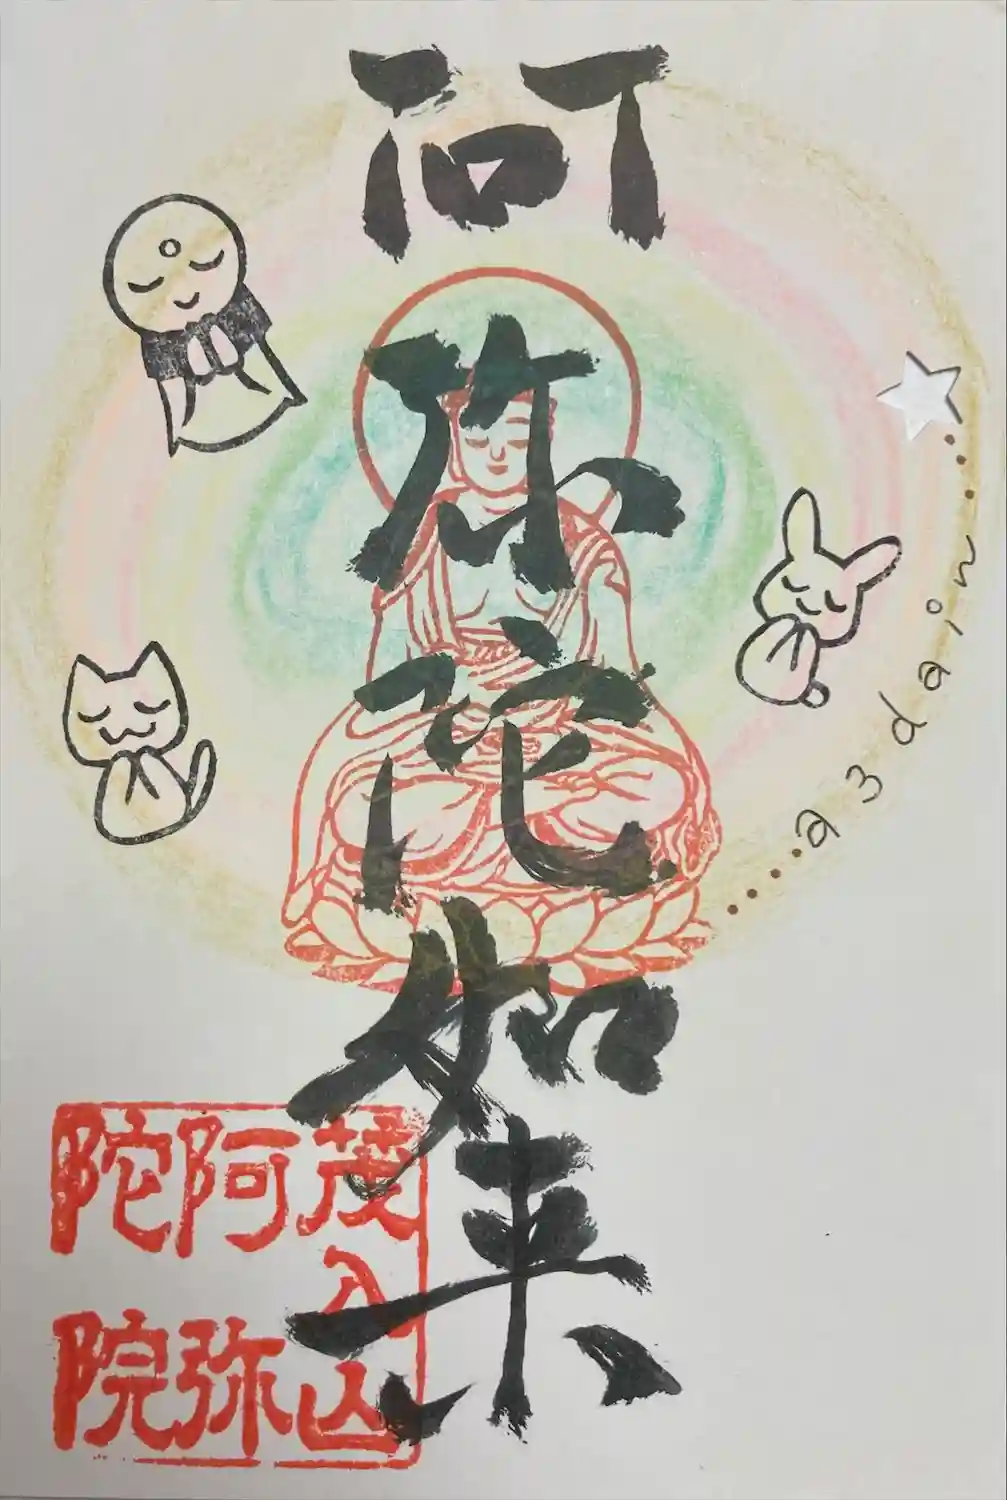 阿弥陀如来
a3dain
茂入山
阿弥
陀院